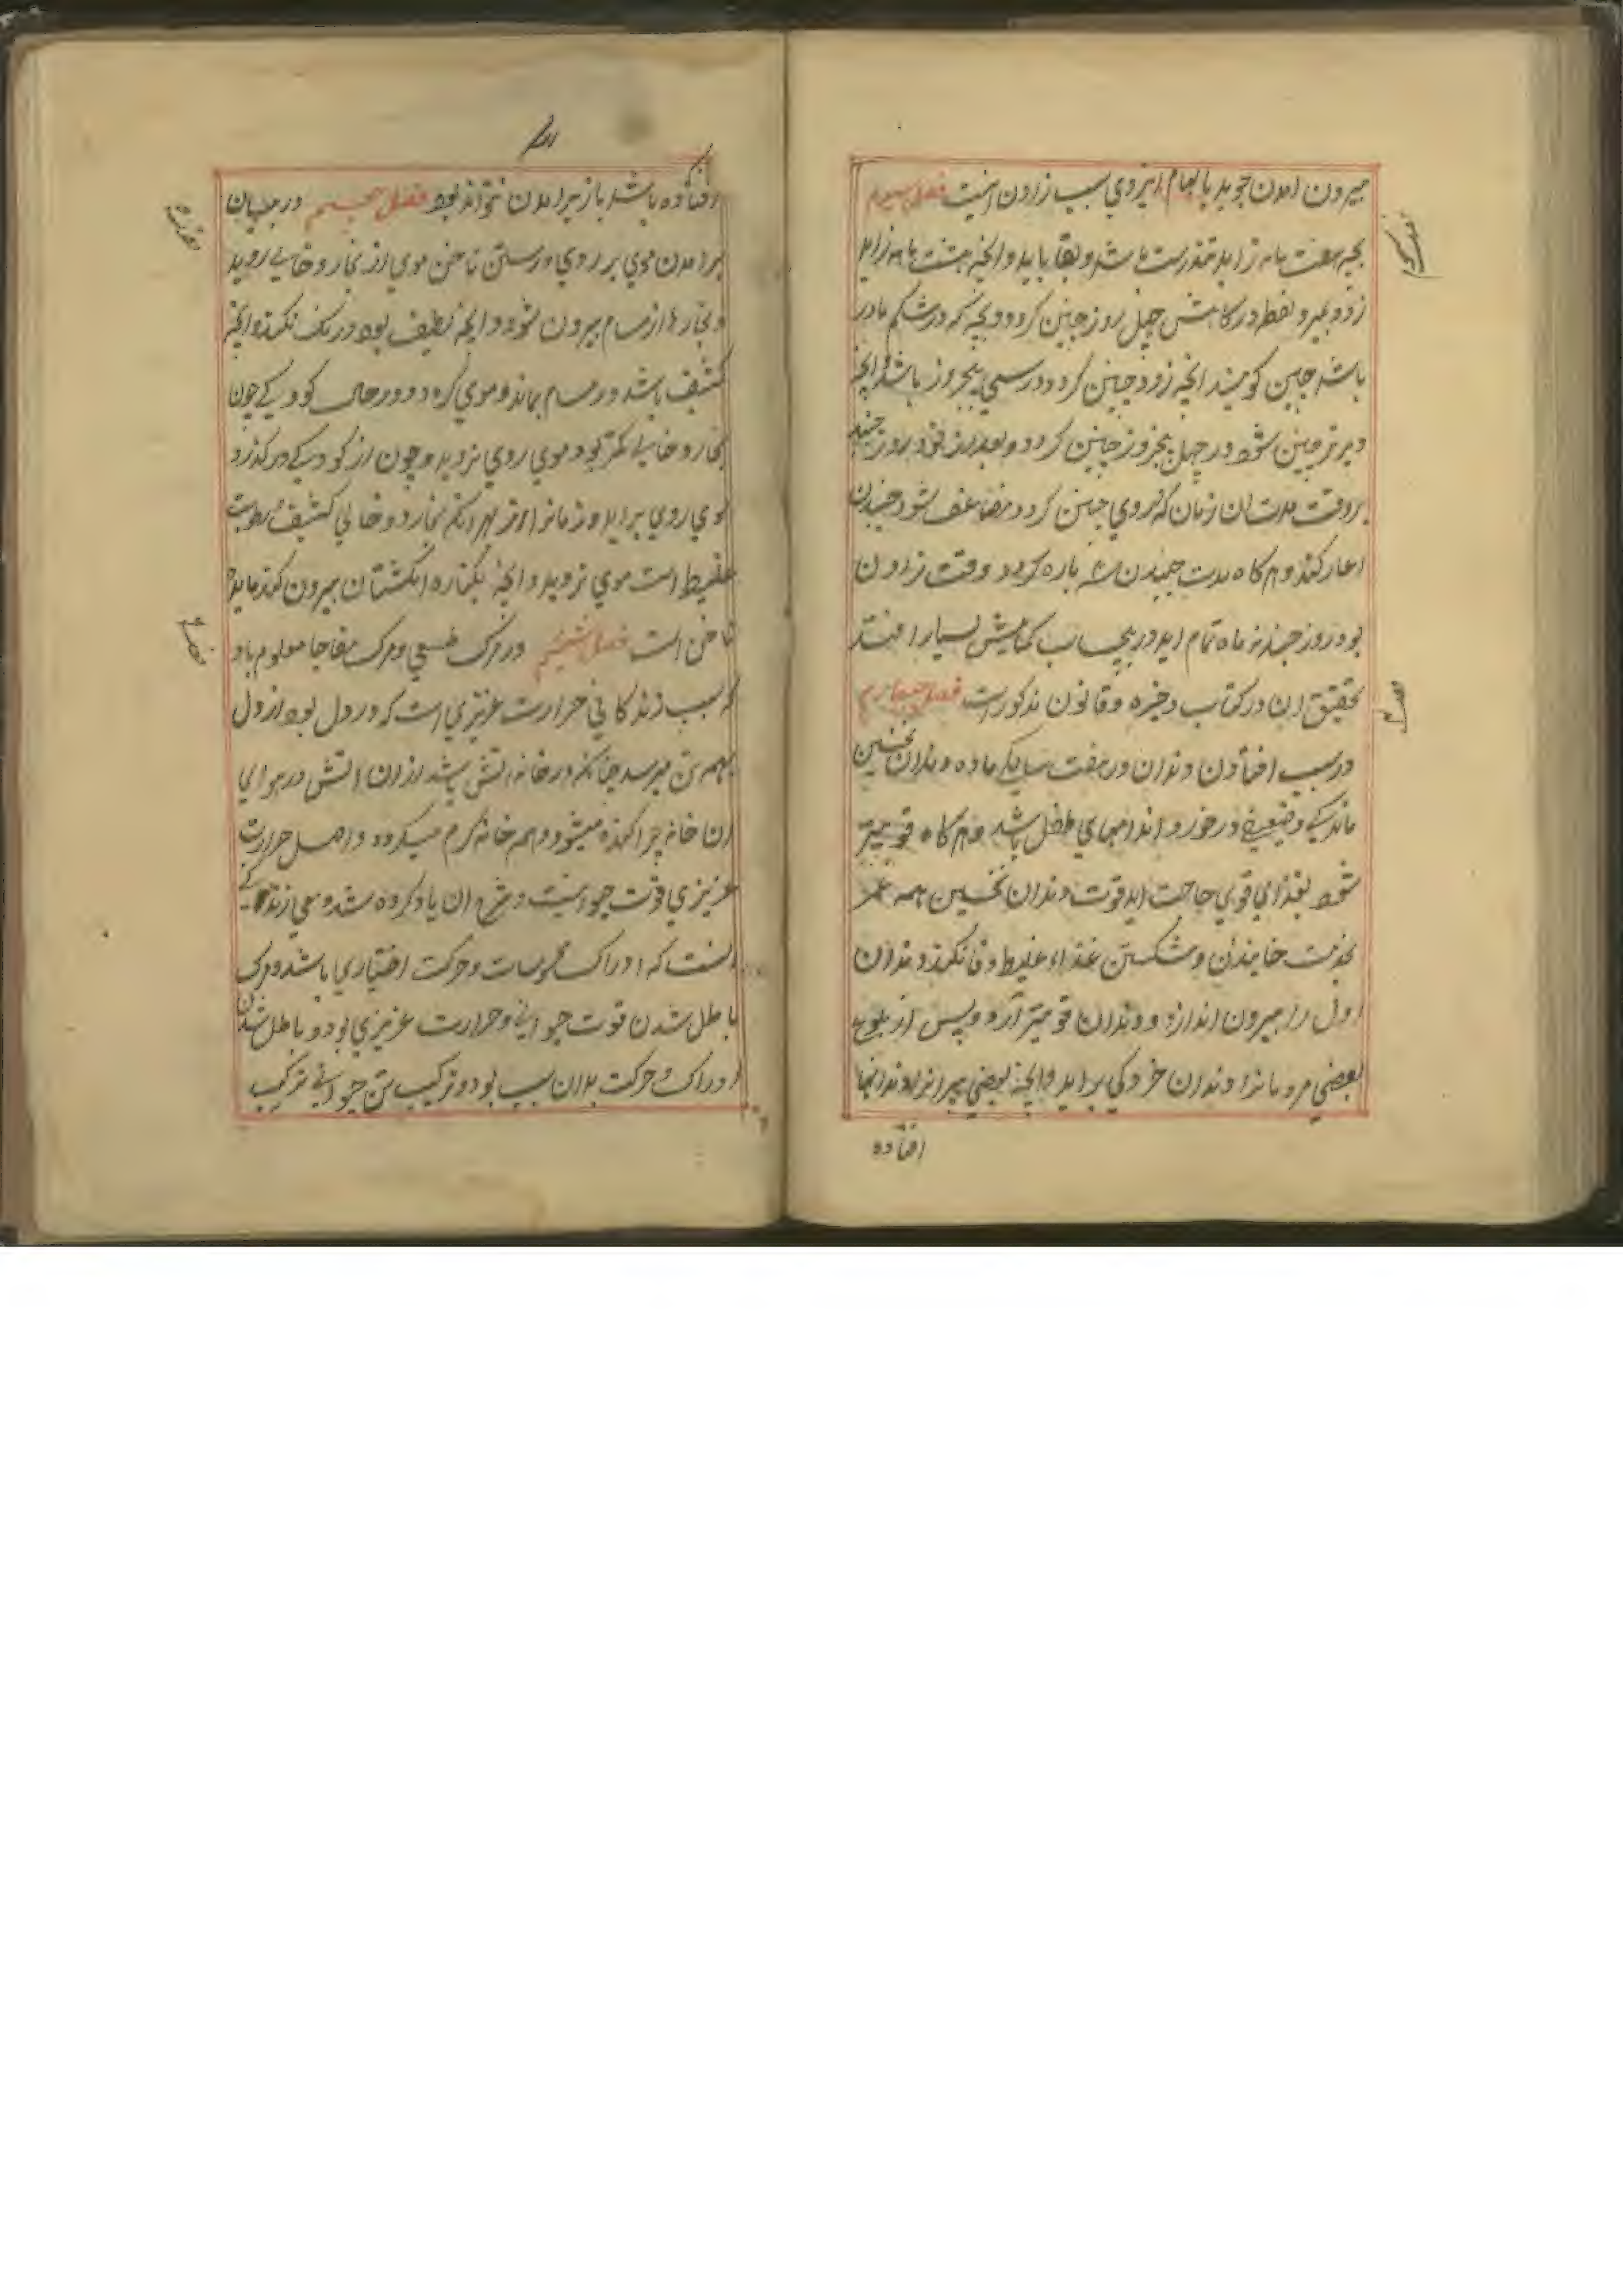 بیرون امدن جوید بالهام ایزدی سبب زادن اینست فصل سیوم
بچه هفت ماه زاید تندرست باشد و بقا یابد و انچه هشت ماه زاید
زود بمیرد و نطفه در کمابیش چهل روز جنین کردد و بچه که در شکم مادر
باشد جنین کویند انچه زود جنین کردد در سی پنجروز باشد و انچه
دیرتر جنین شود در چهل پنجروز جنین کردد و بعد از نود روز جنبد
هر وقت مدت ان زمان که دروی جنین کردد مضاعف شود جنبیدن
اغاز کند و هرکاه مدت جنبیدن سه باره کردد وقت زادن
بود روز چند نه ماه تمام اید در حساب کمابیش بسیار افتد
تحقیق ان در کتاب ذخیره و قانون مذکورست فصل چهارم
در سبب افتادن دندان در هفت سالکی ماده دندان نخستین
اندکی و ضعیفی در خور و اندامهای طفل باشد هرکاه قویتر
شود بغذای قوی حاجت اید قوت دندان نخستین همه عمر
بخدمت خاییدن و شکستن غذاء غلیظ وفا نکند دندان
اول را بیرون اندازد و دندان قویتر آرد و پس از بلوغ
بعضی مردمانرا دندان خردکی براید و انچه بعضی پیرانرا دندانها
افتاده
افتاده باشد باز برامدن نتواند بود فصل پنجم در بیان
برامدن موی بر روی و رستن ناخن موی از بخار دخانی روید
و بخارها از مسام بیرون شود و انچه لطیف بود درنک نکند و انچه
کثیف باشد در مسام بماند و موی کردد و در حال کودکی چون
بخار دخانی کمتر بود موی روی نروید و چون از کودکی درکذرد
موی روی براید و زنانرا از بهر انکه بخار دخانی کثیف رطوبت
غلیظ است موی نروید و انچه بکناره انکشتان بیرون کند ماده
ناخن است فصل ششم در مرک طبیعی و مرک مفاجا معلوم باد
که سبب زندکانی حرارت غریزی است که در دل بود از دل
بهمه تن میرسد چنانکه در خانه اتش باشد از ان اتش در هوای
ان خانه پراکنده میشود و همه خانه کرم میکردد و اصل حرارت
غریزی قوت حیوانیست و شرح ان یاد کرده شد و معنی زندکانی
انست که ادراک محسوسات و حرکت اختیاری باشد و مرک
باطل شدن قوت حیوانی و حرارت غریزی بود و باطل شدن
ادراک و حرکت بدان سبب بود و ترکیب تن حیوانی ترکیب